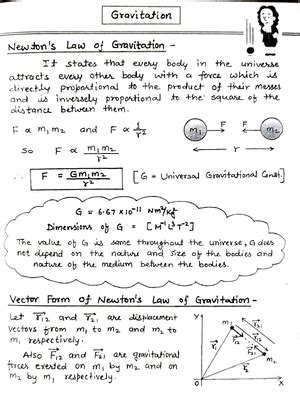 Gravitation
Newton's Law of Gravitation -
It states that every body in the universe
attracts every other body with a force which is
directly proportional to the product of their masses
and is inversely proportional to the square of the
distance between them.
F ∝ m₁m₂ and F ∝ 1/r²
m₁ F F m₂
So F ∝ m₁m₂/r²
r
∴ F = Gm₁m₂/r² [G = Universal Gravitational Const.]
G = 6.67 × 10⁻¹¹ Nm²/kg²
Dimensions of G = [M⁻¹L³T⁻²]
The value of G is same throughout the universe, G does
not depend on the nature and size of the bodies and
nature of the medium between the bodies.
Vector Form of Newton's Law of Gravitation -
Let r⃗₁₂ and r⃗₂₁ are displacement
vectors from m₁ to m₂ and m₂ to
m₁ respectively.
Also F⃗₁₂ and F⃗₂₁ are gravitational
forces exerted on m₁ by m₂ and on
m₂ by m₁ respectively.
Y
m₁
m₂
O
X